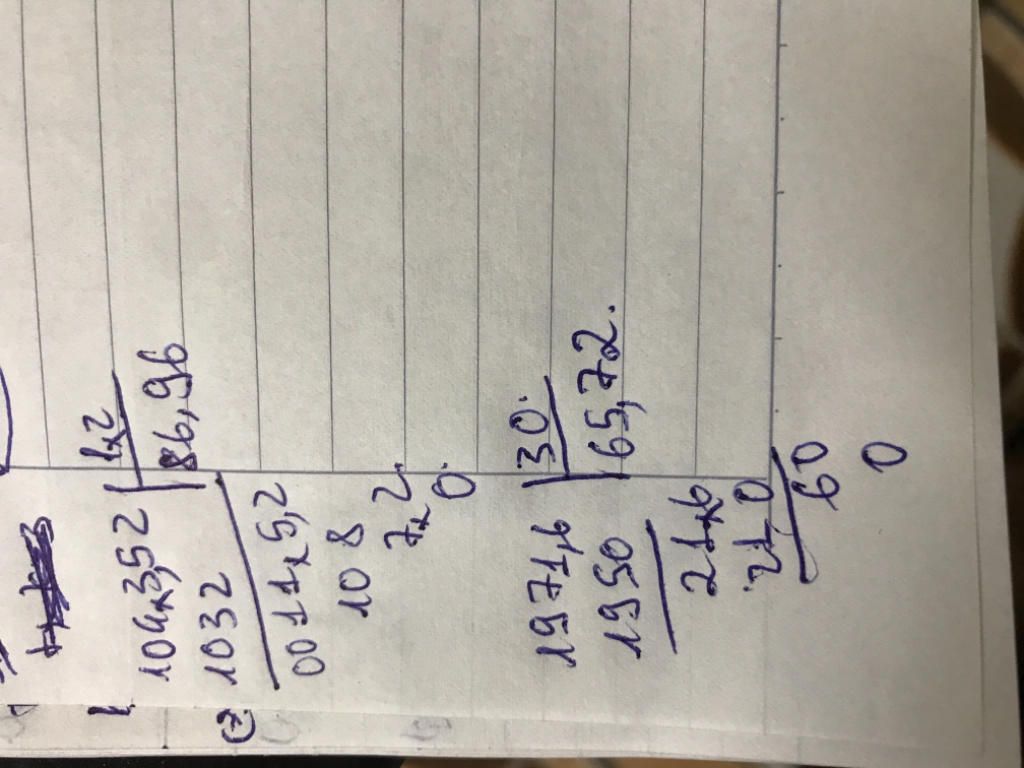 1043,52 | 12
1032 86,96
00115,2
108
72
0
1971,6 | 30.
1950 65,72.
21,6
21,0
60
0